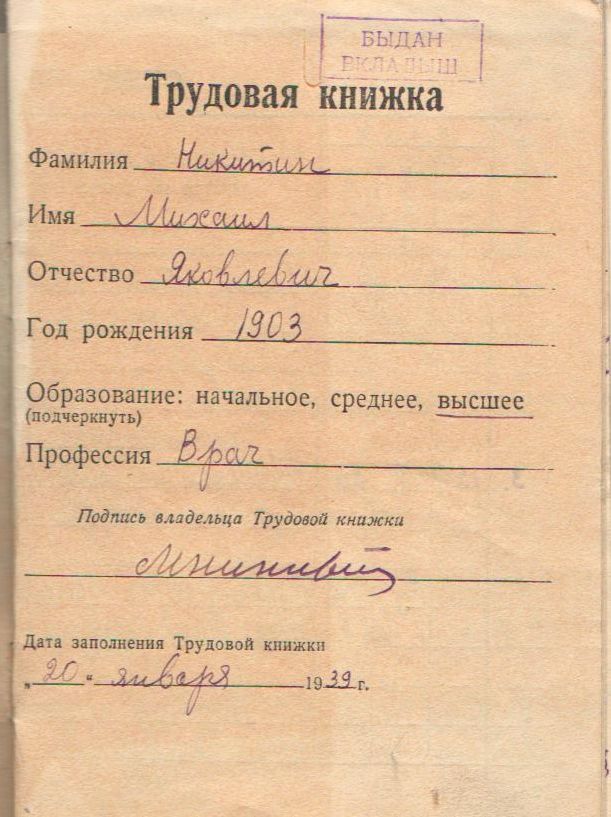 ВЫДАН
ВКЛАДЫШ
Трудовая книжка
Фамилия Никитин
Имя Михаил
Отчество Яковлевич
Год рождения 1903
Образование: начальное, среднее, высшее
(подчеркнуть)
Профессия Врач
Подпись владельца Трудовой книжки
Дата заполнения Трудовой книжки
„20“ января 1939 г.